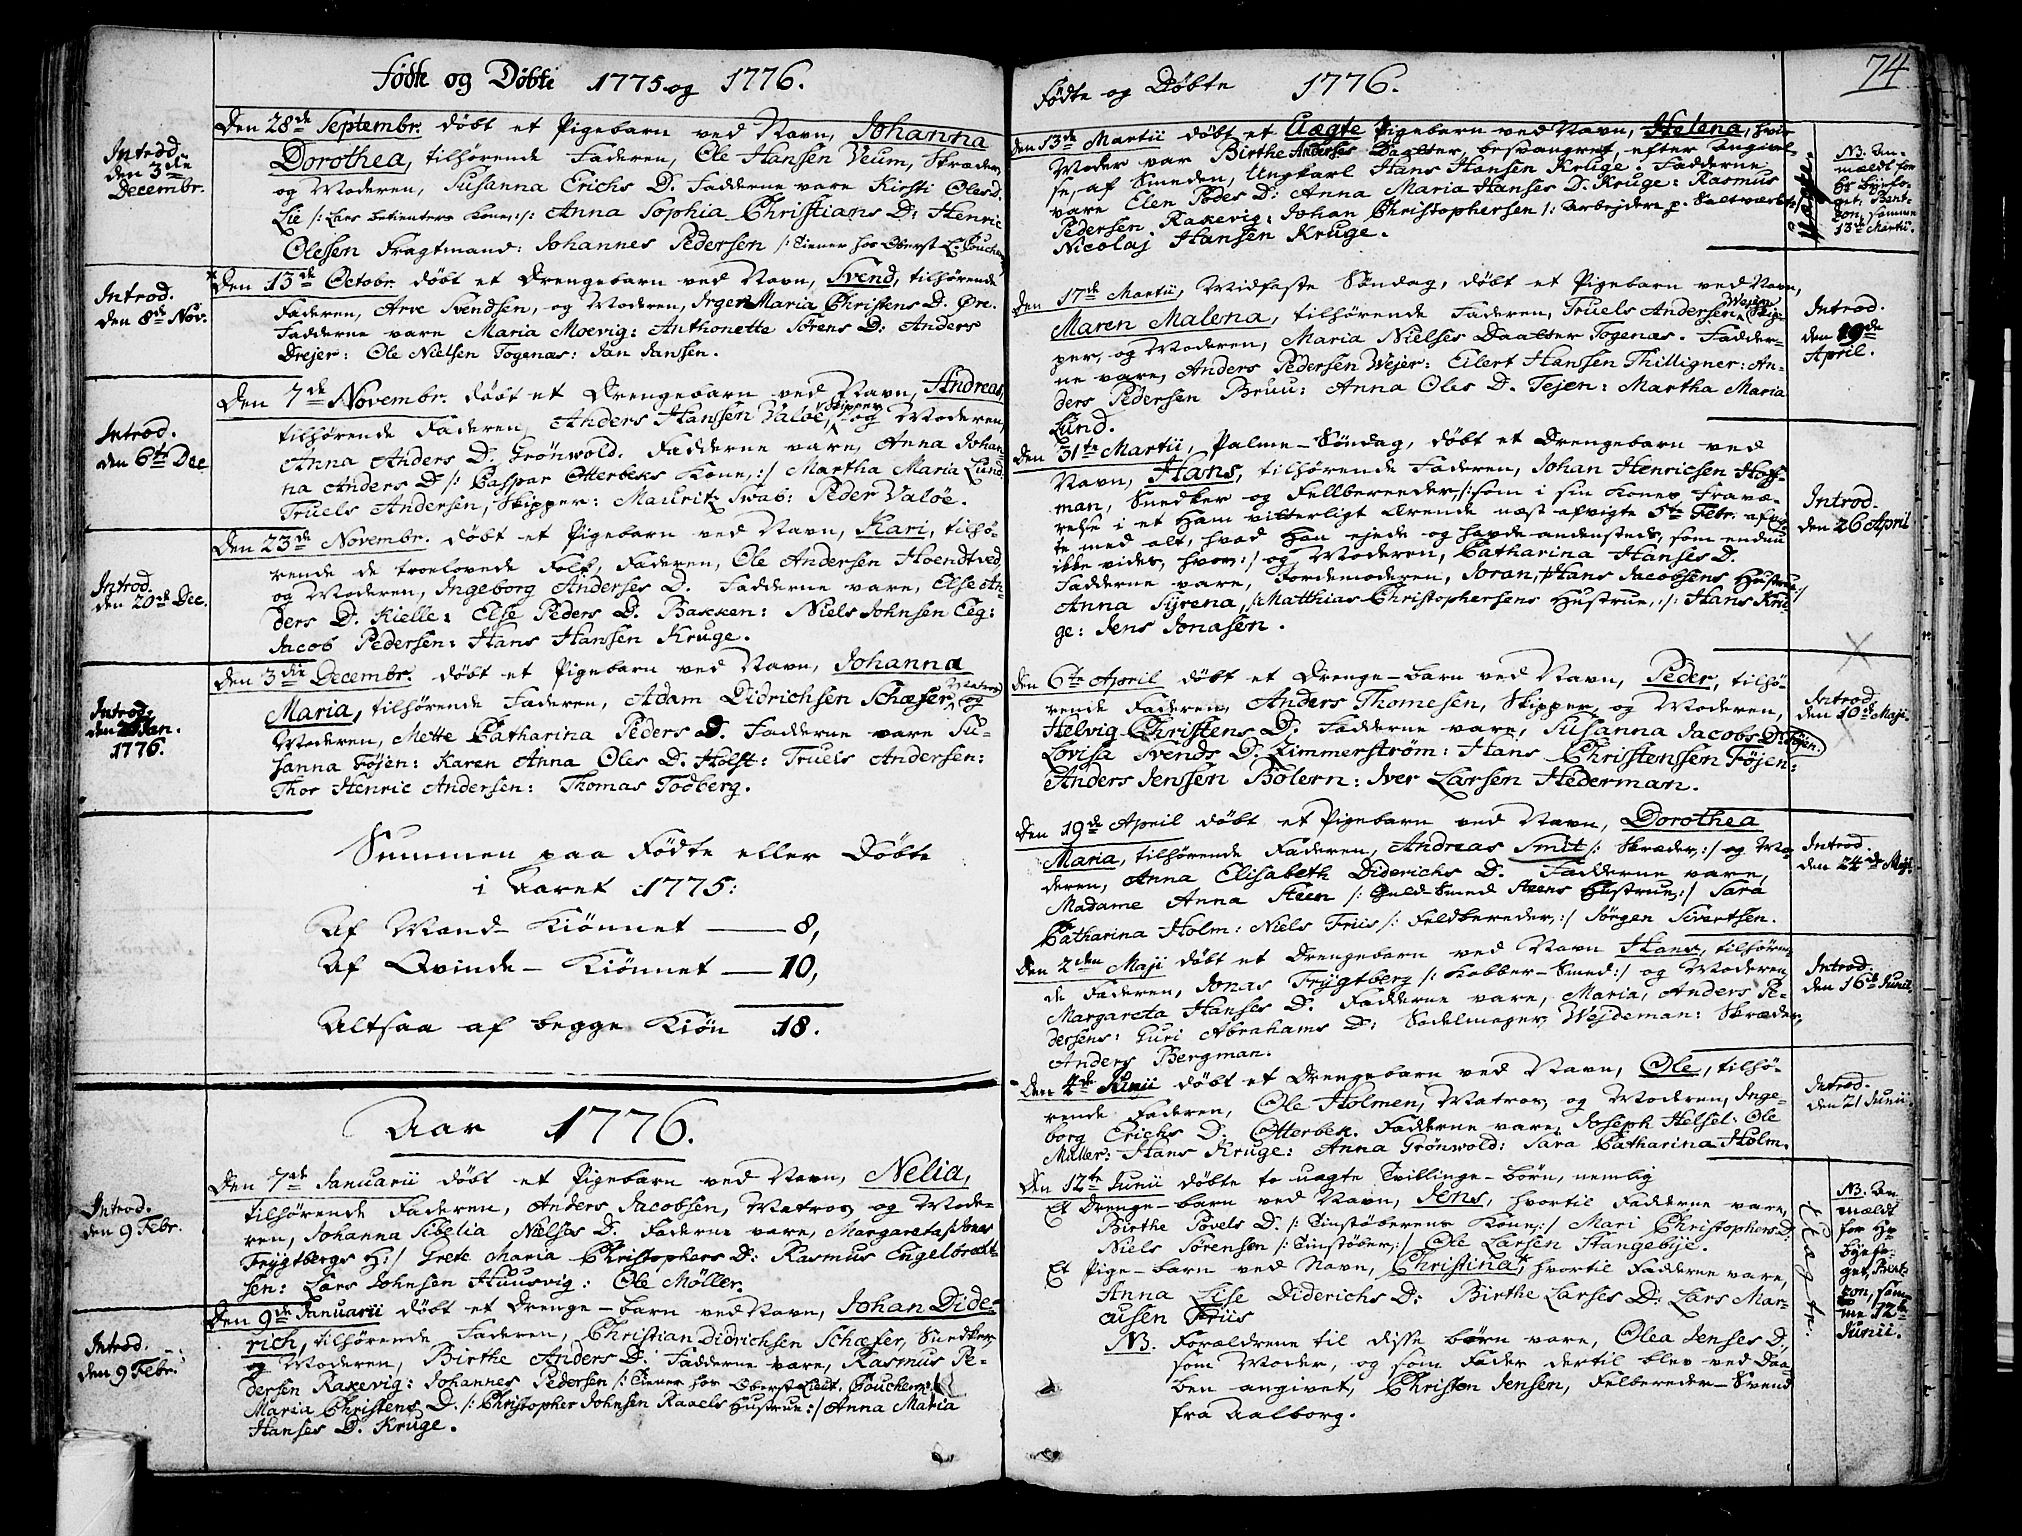 Fødte og Døbte 1775 og 1776.
Introd. den 3de Decembr.
Den 28de Septembr. døbt et Pigebarn ved Navn, Johanna
Dorothea, tilhørende Faderen, Ole Hansen Veum, Skræder,
og Moderen, Susanna Erichs D. Fadderne vare Kirsti Olesd.
Lie /: Lars betienters Kone, :/: Anna Sophia Christians D: Henric
Olessen Fragtmand: Johannes Pedersen /: Tiener hos Oberst L.
Introd. den 8de Nov.
Den 13de Octobr. døbt et Drengebarn ved Navn, Svend, tilhørende
Faderen, Arve Svendsen, og Moderen, Inger Maria Christens D. Øre.
Fadderne vare Maria Moevig: Anthonette Sørens D: Anders
Drejer: Ole Nielsen Togenæs: Jan Janssen.
Introd. den 6te Dec
Den 7de Novembr. døbt et Drengebarn ved Navn, Andreas,
tilhørende Faderen, Anders Hanssen Valøe, Skipper, og Moderen,
Anna Anders D. Grønwold. Fadderne vare, Anna Johan-
na Anders D /: Caspar Otterbeks Kone, :/ Martha Maria Lund
Truels Andersen, Skipper: Mauritz Swab: Peder Valøe.
Introd. den 20de Dec.
Den 23de Novembr. døbt et Pigebarn ved Navn, Kari, tilhø-
rende de troelovede Folk, Faderen, Ole Andersen Hoendtved,
og Moderen, Ingeborg Anderses D. Fadderne vare, Else An-
ders D. Kielle: Else Peders D. Bakken: Niels Johnsen Eeg:
Jacob Pedersen: Hans Hansen Kruge.
Introd. den Jan. 1776.
Den 3die Decembr. døbt et Pigebarn ved Navn, Johanna
Maria, tilhørende Faderen, Adam Didrichsen Schæfer, Matros, og
Moderen, Mette Catharina Peders D. Fadderne vare Su-
sanna Føjen: Karen Anna Oles D. Holst: Truels Andersen:
Thor Henric Andersen: Thomas Todberg.
Summen paa Fødte eller Døbte
i Aaret 1775:
Af Mand-Kiønnet — 8,
Af Qvinde-Kiønnet — 10,
Altsaa af begge Kiøn 18.
Aar 1776.
Introd. den 9 Febr.
Den 7de Januarii døbt et Pigebarn ved Navn, Nelia,
tilhørende Faderen, Anders Jacobsen, Matros, og Mode-
ren, Johanna Sibelia Nielses D. Fadderne vare, Margareta /: Jonas
Frygtbergs H:/ Grete Maria Christophers D: Rasmus Engelbrecht-
sen: Lars Johnsen Huusvig: Ole Møller.
Introd. den 9 Febr.
Den 9de Januarii døbt et Drenge-barn ved Navn, Johan Dide-
rich, tilhørende Faderen, Christian Didrichsen Schæfer, Snedker,
og Moderen, Birthe Anders D. Fadderne vare, Rasmus Pe-
dersen Raxevig: Johannes Pedersen /: Tiener hos Oberst-Lieut.
Maria Christens D. /: Christopher Johnsen Raaels Hustrue :/ Anna Maria
Hanses D. Kruge.
74
Fødte og Døbte 1776.
Den 13de Martii døbt et Uægte Pigebarn ved Navn, Helena, hvis
Moder var Birthe Anderses Daatter, besvangret, efter Angivel-
se, af Smeden, Ungkarl Hans Hansen Kruge. Fadderne
vare Elen Poves D: Anna Maria Hanses D. Kruge: Rasmus
Pedersen Raxevig: Johan Christophersen /: Arbejder p. Saltværket
Nicolaj Hansen Kruge.
Uægte.
NB. An-
mældt for
Hr Byefo-
get, Bent-
zon, samme
13de Martii.
Den 17de Martii, Midfaste Søndag, døbt et Pigebarn ved Navn,
Maren Malena, tilhørende Faderen, Truels Andersen Wejer, Skip-
per, og Moderen, Maria Nielses Daatter Togenæs. Fadder-
ne vare, Anders Pedersen Wejer: Eilert Hanssen Thilligner: An-
ders Pedersen Bruu: Anna Oles D. Tejen: Martha Maria
Lund.
Introd. den 19de April.
Den 31te Martii, Palme-Søndag, døbt et Drengebarn ved
Navn, Hans, tilhørende Faderen, Johan Henricsen Hoff-
man, Snedker og Fellbereder, /: som i sin Kones Fravæ-
relse i et ham vitterligt Ærende næst afvigte 5te Febr. afrei-
te med alt, hvad han ejede og havde andenstedts, som endnu
ikke vides, hvor :/ og Moderen, Catharina Hanses D.
Fadderne vare, Jordemoderen, Joran, /: Hans Jacobsens Hustrue :/
Anna Syrena, /: Matthias Christophersens Hustrue, :/: Hans Kru-
ge: Jens Jonasen.
Introd. den 26 April
Den 6te April døbt et Drenge-barn ved Navn, Peder, tilhø-
rende Faderen, Anders Thomesen, Skipper, og Moderen,
Helvig Christens D. Fadderne vare, Susanna Jacobs D. Føjen:
Lovisa Svends D. Zimmerstrøm: Hans Christenssen Føjen:
Anders Jenssen Bølern: Iver Larsen Hederman.
Introd. den 10de Maji.
Den 19de April døbt et Pigebarn ved Navn, Dorothea
Maria, tilhørende Faderen, Andreas Smit /: Skræder, :/ og Mo-
deren, Anna Elisabeth Diderichs D. Fadderne vare,
Madame Anna Steen /: Guld-Smed Steens Hustrue, :/ Sara
Catharina Holm: Niels Friis /: Feldbereder, :/ Jørgen Sivertsen.
Introd. den 24de Maji.
Den 2den Maji døbt et Drengebarn ved Navn Hans, tilhøren-
de Faderen, Jonas Frygtberg /: Kobber-Smed :/ og Moderen
Margareta Hanses D. Fadderne vare, Maria, Anders Pe-
dersens: Guri Abrahams D: Sadelmager Wejdeman: Skræder,
Anders Bergman.
Introd. den 16de Junii.
Den 4de Junii døbt et Drengebarn ved Navn, Ole, tilhø-
rende Faderen, Ole Holmen, Matros, og Moderen, Inge-
borg Erichs D. Otterbek. Fadderne vare, Joseph Helsel: Ole
Müller: Hans Kruge: Anna Grønwold: Sara Catharina Holm.
Introd. den 21 Junii.
Den 12te Junii døbte to uægte Tvillinge-børn, nemlig
Et Drenge-barn ved Navn, Jens, hvortil Fadderne vare,
Birthe Povels D. /: Tinstøberens Kone, :/ Mari Christophers D.
Niels Sørensen /: Tinstøber, :/ Ole Larsen Stangebye.
Et Pige-barn ved Navn, Christina, hvortil Fadderne vare,
Anna Lise Diderichs D: Birthe Larses D: Lars Mar-
cusen Friis
NB. Forældrene til disse børn vare, Olea Jenses D,
som Moder, og som Fader dertil blev ved Daa-
ben angivet, Christen Jensen, Felbereder-Svend
fra Aalborg.
Uægte.
NB. An-
mældt
for Hr
Byefo-
get, Bent-
zon, sam-
me 12te
Junii.